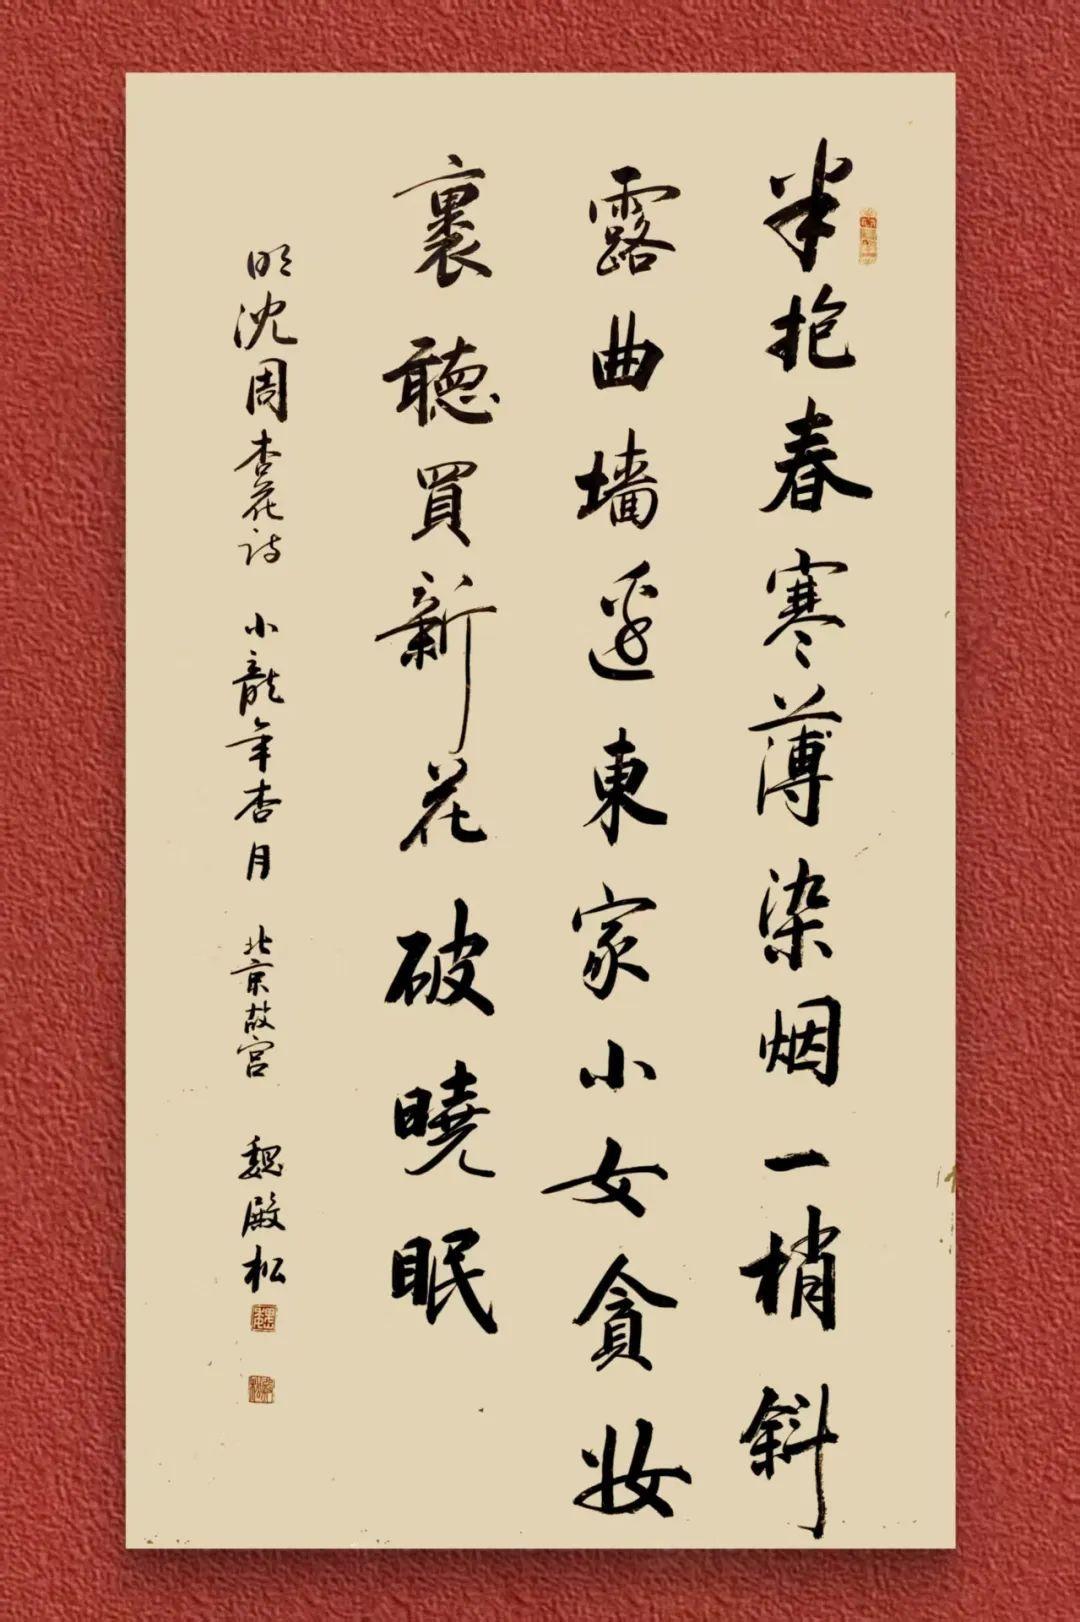 半抱春寒薄染烟一梢斜
露曲墙邊東家小女貪妝
裹聽買新花破曉眠
明沈周杏花诗 小龍年杏月 北京故宫 魏殿松